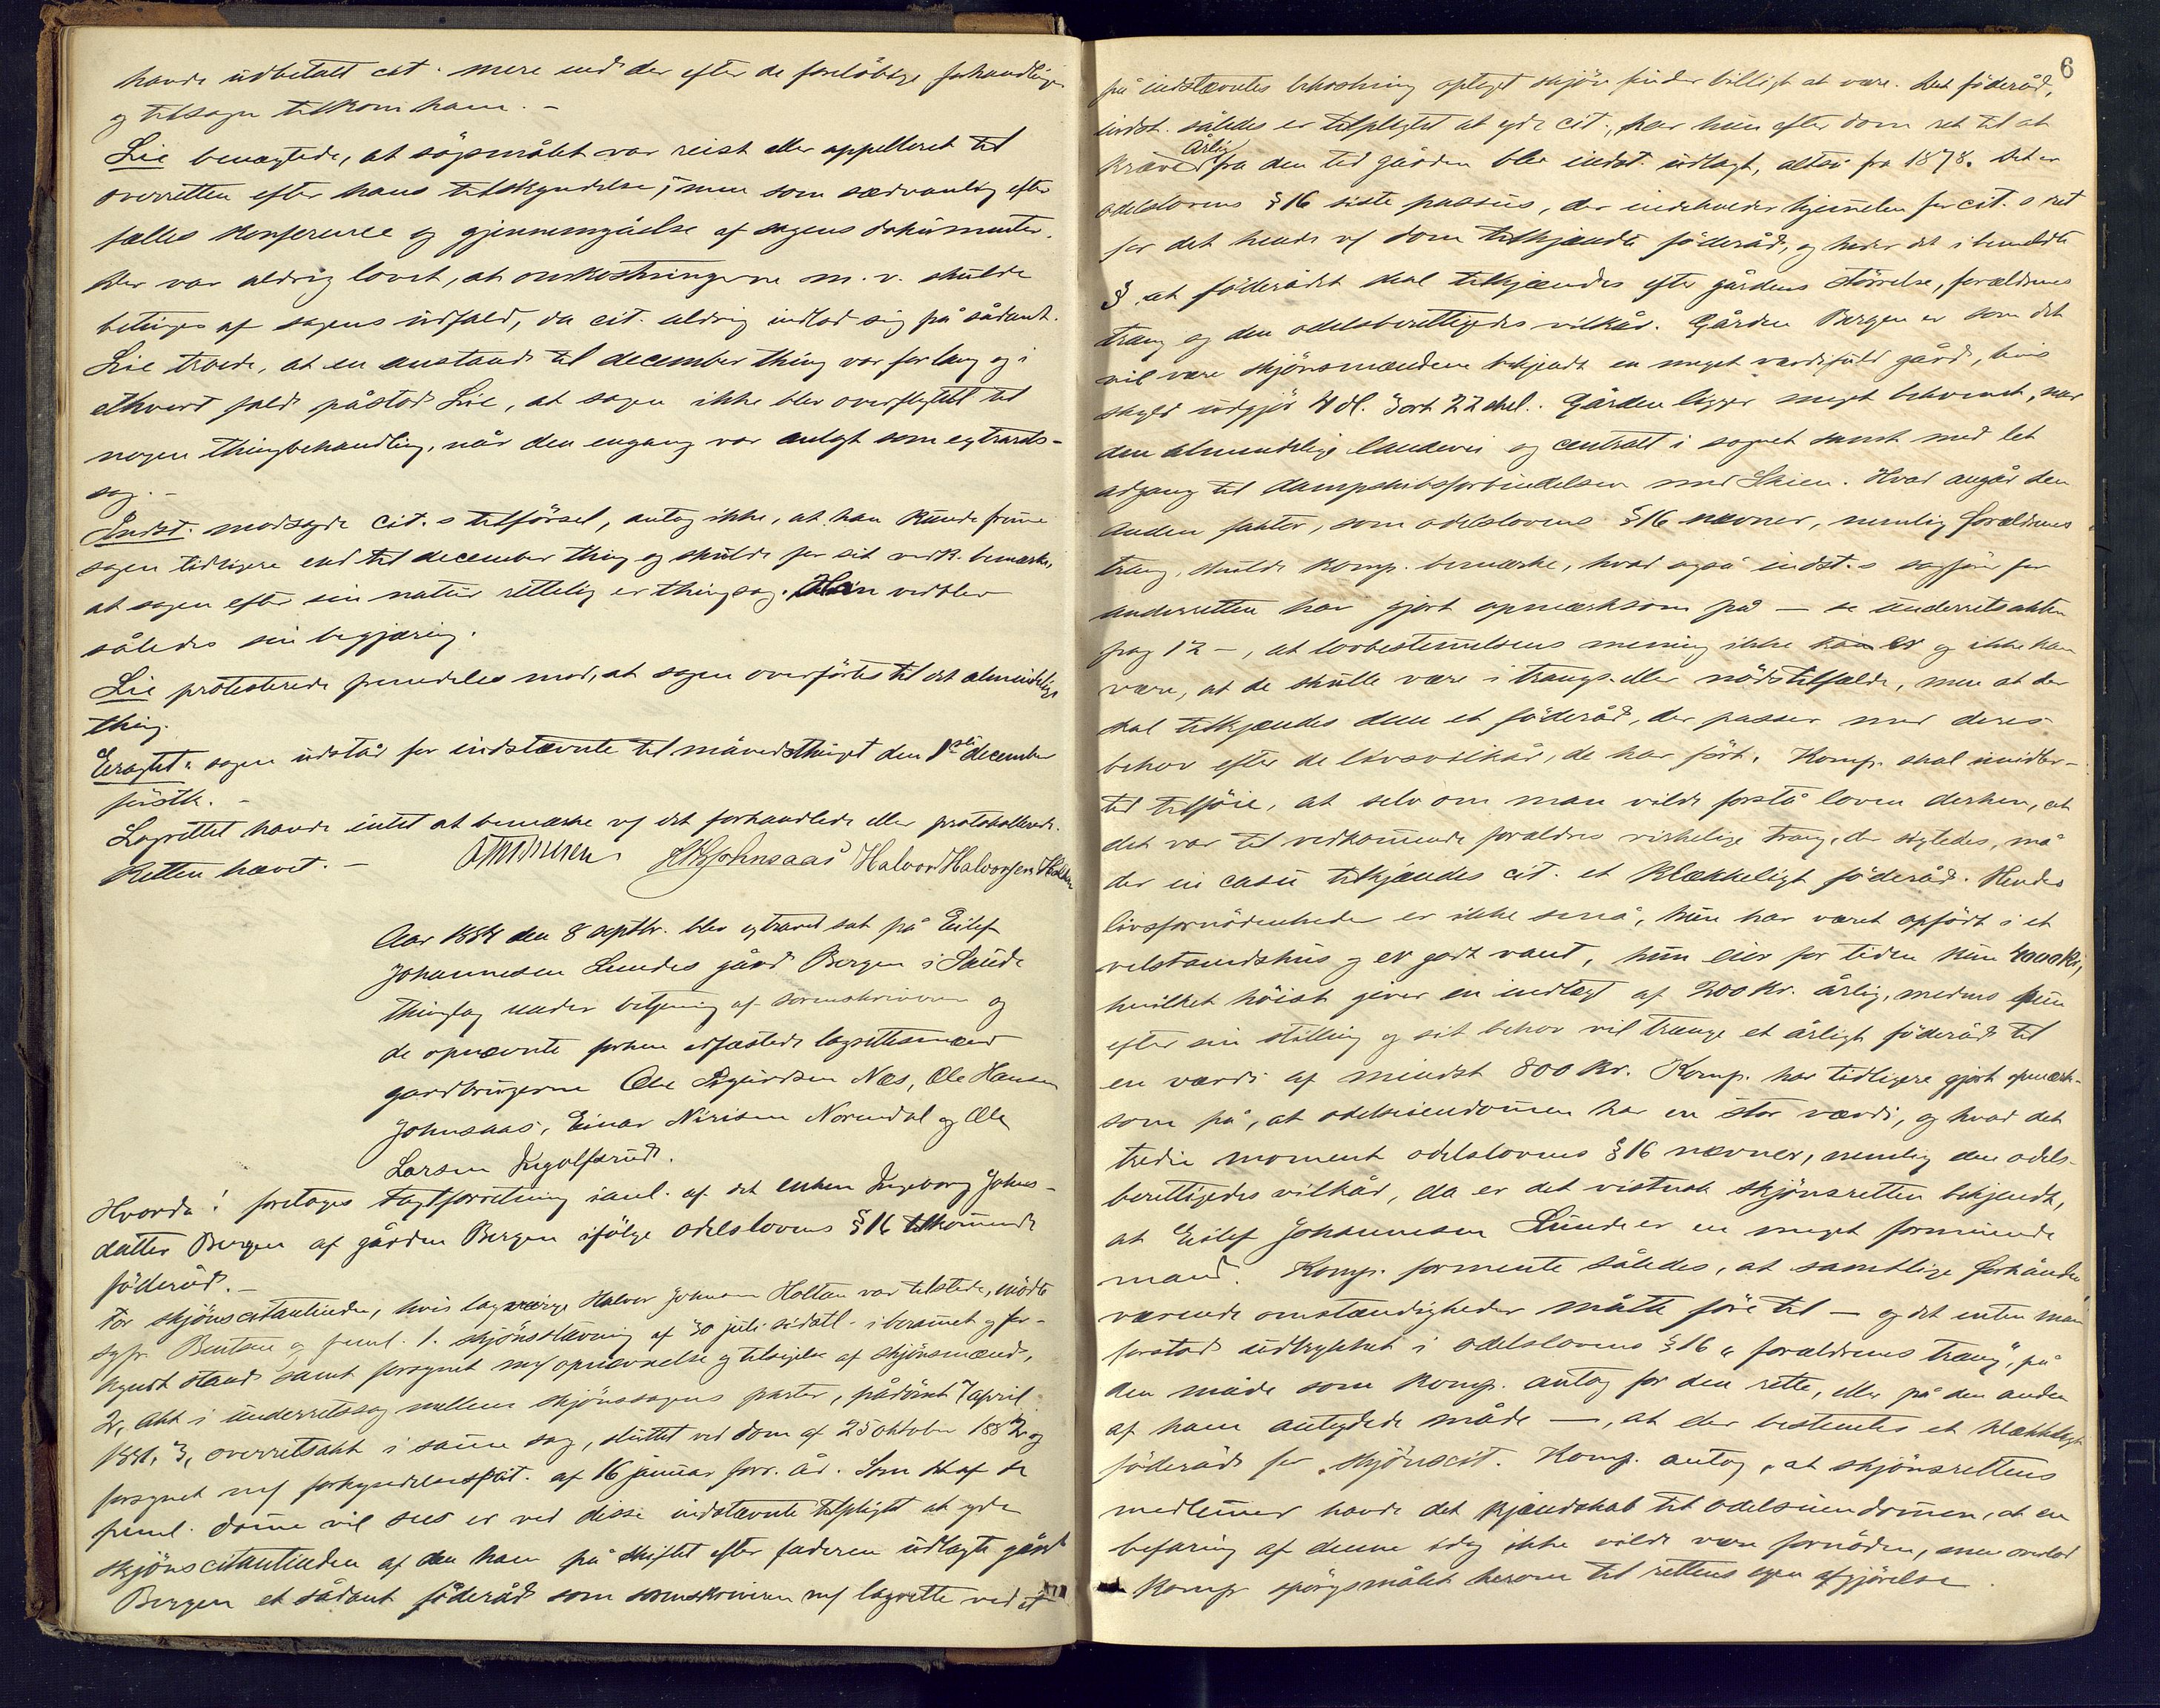 havde udbetalt cit. mere end der efter de foreløbige forhandlinger
og tilsagn tilkom ham. –
Lie benægtede, at søgsmålet var reist eller appelleret til
overretten efter hans tilskyndelse, men som sædvanlig efter
fælles konference og gjennemgåelse af sagens dokumenter.
Der var aldrig lovet, at omkostningerne m. v. skulde
betinges af sagens udfald, da cit. aldrig indlod sig på sådant.
Lie troede, at en anstand til december thing var for lang og i
ethvert fald påstod Lie, at sagen ikke blev overflyttet til
nogen thingbehandling, når den engang var anlagt som extrarets-
sag. –
Indst. modsagde cit.s tilførsel, antog ikke, at han kunde fremme
sagen tidligere end til december thing og skulde for sit vedk. bemærke,
at sagen efter sin natur rettelig er thingsag. Han vedblev
således sin begjæring.
Lie protesterede fremdeles mod, at sagen overførtes til det almindelige
thing.
Eragtet: sagen udstår for indstævnte til månedsthinget den 1ste december
førstk. –
Lagrettet havde intet at bemærke ved det forhandlede eller protokollerede.
Retten hævet. –
Halvor Halvorsen
Aar 1884 den 8 septbr. blev extraret sat på Eilef
Johannesen Lundes gård Bergen i Saude
thinglag under betjening af sorenskriveren og
de opnævnte forhen edfæstede lagrettesmænd
gardbrugerne Ole Sigurdsen Næs, Ole Hansen
Johnsaas, Einar Nirisen Nordal og Ole
Larsen Ingolfsrud.
Hvorda! foretoges taxtforretning saml. af det enken Ingeborg Johns-
datter Bergen af gården Bergen ifølge odelslovens § 16 tilkommende
føderåd. –
For skjønscitantinden, hvis lagværge Halvor Johnsen Holtan var tilstede, mødte
sagf. Bentsen og freml. 1. skjønsstævning af 30 juli sidstl. i beramet og for-
kyndt stand samt forsynet m/ opnævnelse og tilsigelse af skjønsmænd,
2, Akt i underretssag mellem skjønssagens parter, pådømt 7 april
1881. 3, overretsakt i samme sag, sluttet ved dom af 25 oktober 1882 og
forsynet m/ forkyndelsespåt. af 16 januar forr. år. Som det af de
freml. domme vil sees er ved disse indstævnte tilpligtet at yde
skjønscitantinden af den ham på skiftet efter faderen udlagte gård
Bergen et sådant føderåd som sorenskriveren m/ lagrette ved et
6
på indstævntes bekostning optaget skjøn finder billigt at være. Det føderåd,
indst. således er tilpligtet at yde cit., har hun efter dom ret til at
årlig
kræve fra den tid gården blev indst. udlagt, altså fra 1878. Det er
odelslovens § 16 siste passus, der indeholder hjemelen for cit.s ret
for det hende ved dom tilkjendte føderåd, og heder det i bemeldte
§ at føderådet skal tilkjendes efter gårdens størrelse, forældrenes
trang og den odelsberettigedes vilkår. Gården Bergen er som det
vil være skjønsmændene bekjendt en meget værdifuld gård, hvis
skyld udgjør 4 dl. 3 ort 22 skil. Gården ligger meget bekvemt, nær
den almindelige landevei og centralt i sognet samt med let
adgang til dampskibsforbindelsen med Skien. Hvad angår den
anden faktor, som odelslovens § 16 nævner, nemlig forældrenes
trang, skulde komp. bemærke, hvad også indst.s sagfører for
underretten har gjort opmærksom på – se underretsakten
pag 12 –, at lovbestemmelsens mening ikke er og ikke kan
være, at de skulle være i trangs eller nødstilfælde, men at der
skal tilkjendes dem et føderåd, der passer med deres
behov efter de livsvilkår, de har ført. Komp. skal imidler-
tid tilføie, at selv om man vilde forstå loven derhen, at
det var til vedkommende forældres virkelige trang, der sigtedes, må
der in casu tilkjendes cit. et klækkeligt føderåd. Hendes
livsfornødenheder er ikke små, hun har været opført i et
velstandshus og er godt vant, hun eier for tiden kun 4000 kr.,
hvilket høist giver en indtægt af 200 kr. årlig, medens hun
efter sin stilling og sit behov vil trænge et årligt føderåd til
en værdi af mindst 800 kr. Komp. har tidligere gjort opmærk-
som på, at odelseiendommen har en stor værdi, og hvad det
tredie moment odelslovens § 16 nævner, nemlig den odels-
berettigedes vilkår, da er det vistnok skjønsretten bekjendt,
at Eilef Johannesen Lunde er en meget formuende
mand. Komp. formente således, at samtlige forhånden-
værende omstændigheder måtte føre til – og det enten man
forstod udtrykket i odelslovens § 16 "forældrenes trang", på
den måde som komp. antog for den rette, eller på den anden
af ham antydede måde –, at der bestemtes et klækkeligt
føderåd for skjønscit. Komp. antog, at skjønsrettens
medlemmer havde det kjendskab til odelseiendommen, at en
befaring af denne idag ikke vilde være fornøden, men overlod
komp. spørgsmålet herom til rettens egen afgjørelse.